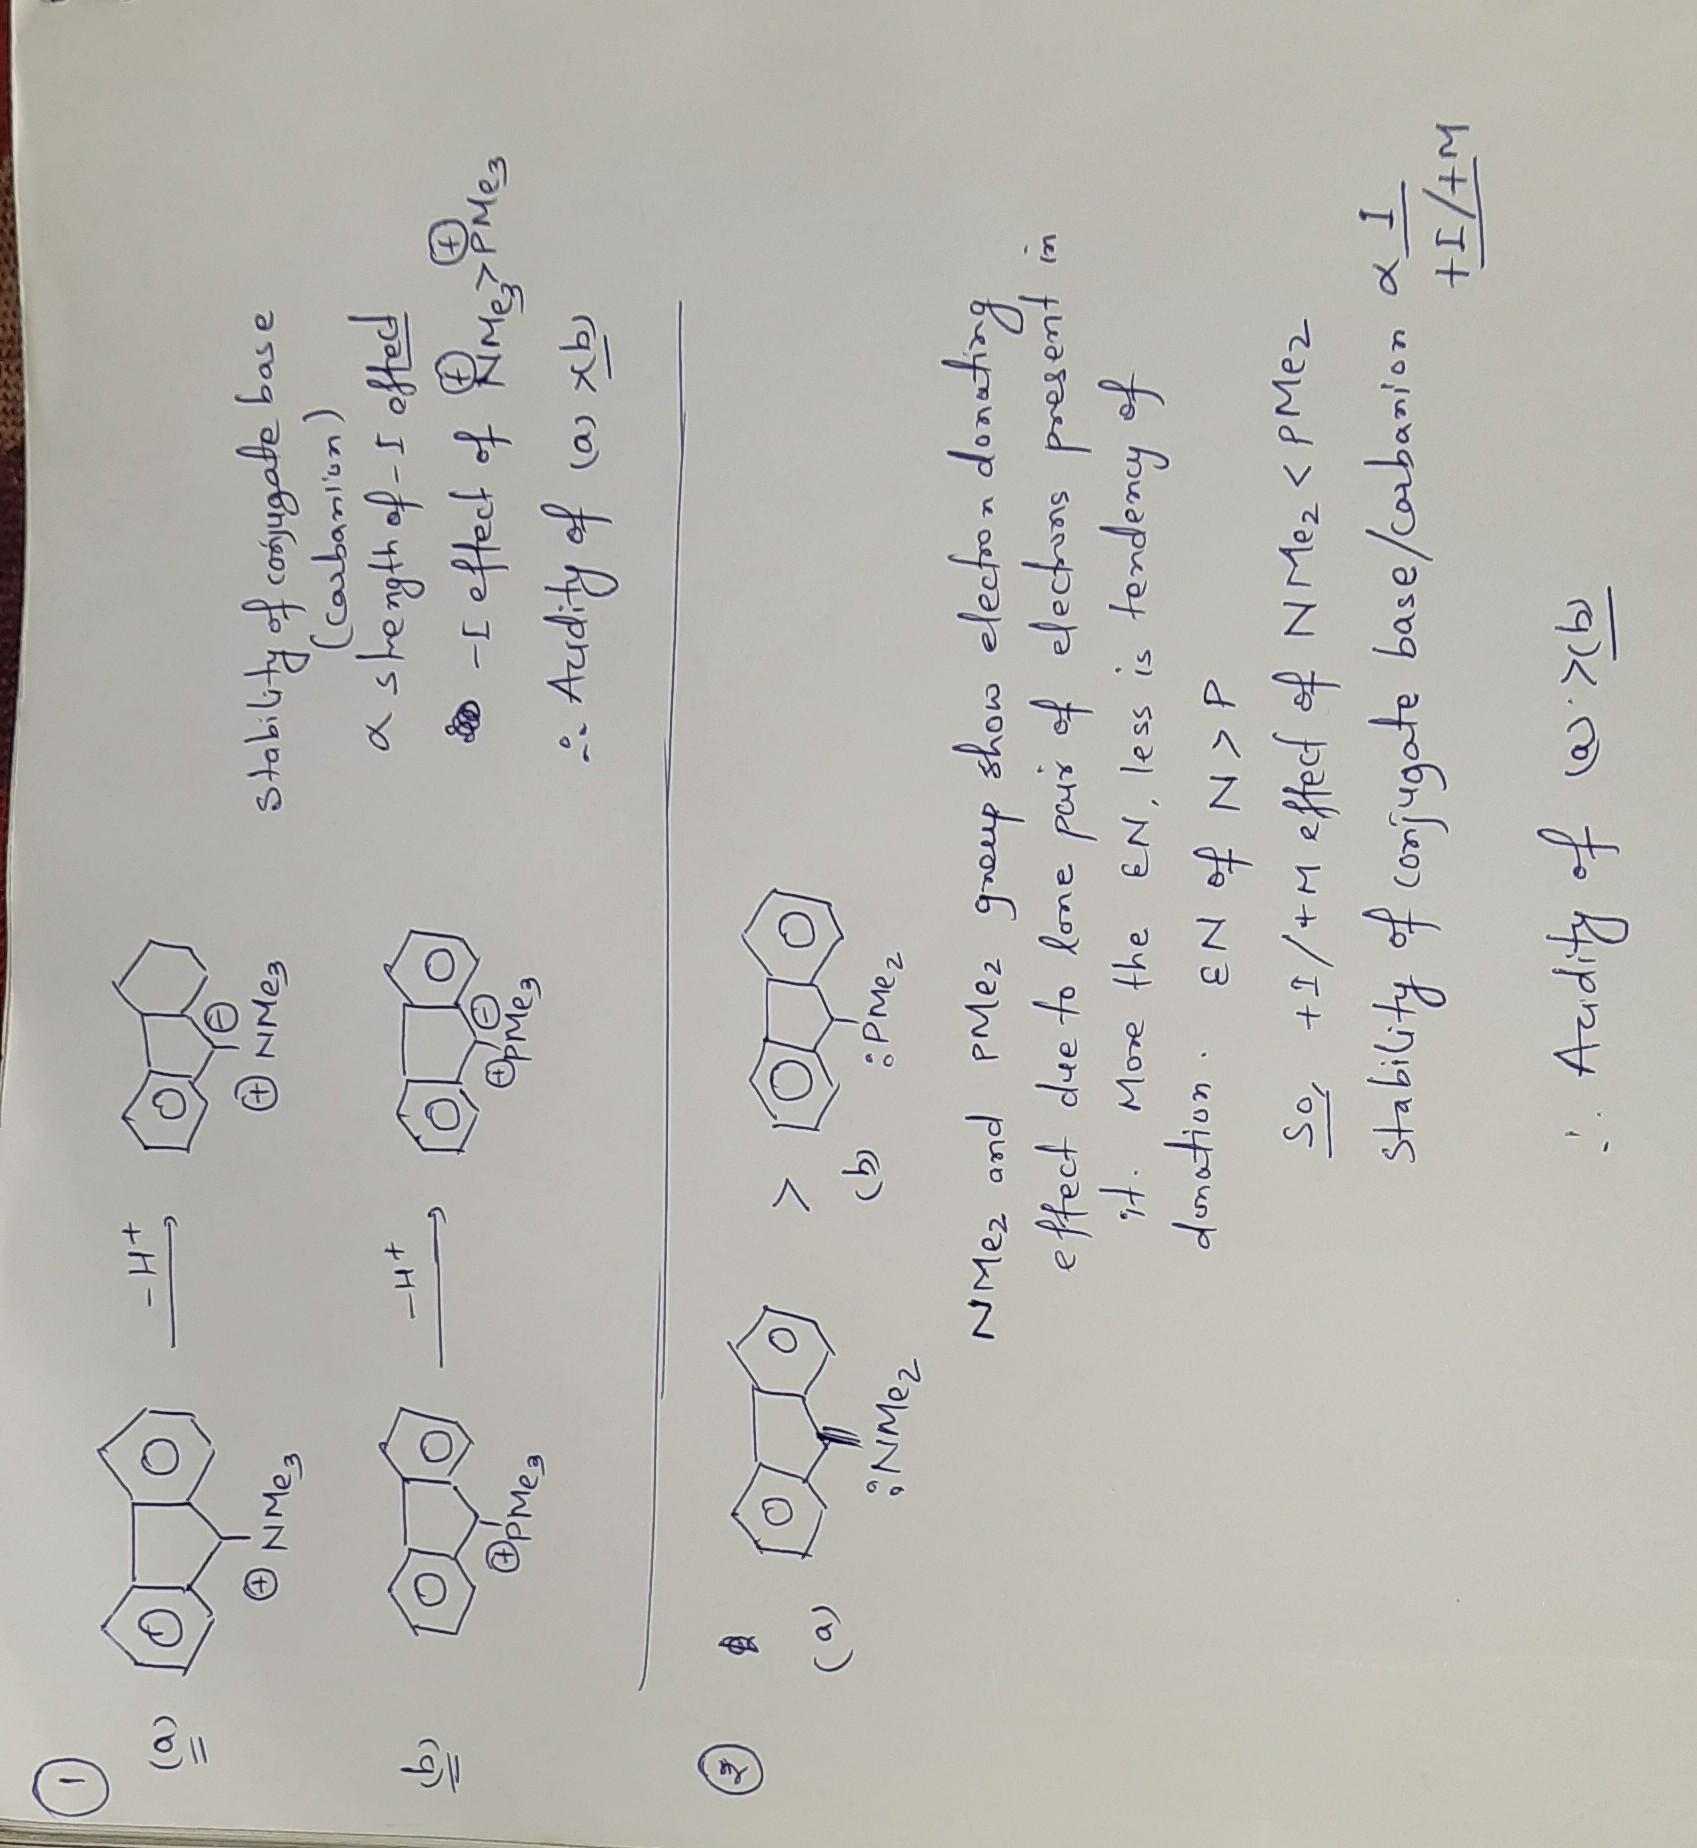 ①
(a)
⊕NMe₃
-H⁺
⊖
⊕NMe₃
(b)
⊕PMe₃
-H⁺
⊖
⊕PMe₃
Stability of conjugate base
(carbanion)
α strength of -I effect
-I effect of ⊕NMe₃>⊕PMe₃
∴ Acidity of (a)>(b)
②
(a)
:NMe₂
>
(b)
:PMe₂
NMe₂ and PMe₂ group show electron donating
effect due to lone pair of electrons present in
it. More the EN, less is tendency of
donation. EN of N > P
So, +I/+M effect of NMe₂ < PMe₂
Stability of conjugate base/carbanion α 1
+I/+M
∴ Acidity of (a) >(b)